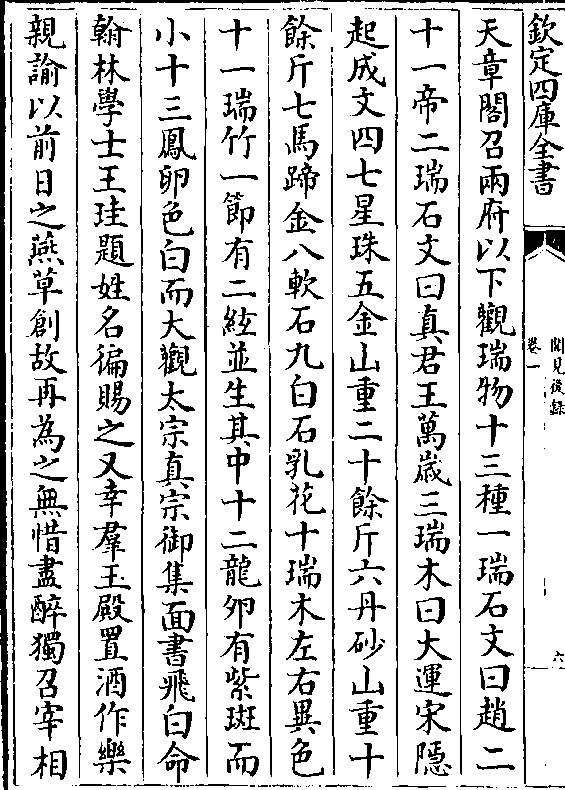 欽定四庫全書
聞見後錄
卷一
六
天章閣召兩府以下觀瑞物十三種一瑞石文曰趙二
十一帝二瑞石文曰真君王萬歲三瑞木曰大運宋隱
起成文四七星珠五金山重二十餘斤六丹砂山重十
餘斤七馬蹄金八軟石九白石乳花十瑞木左右異色
十一瑞竹一節有二絃並生其中十二龍卵有紫斑而
小十三鳳卵色白而大觀太宗真宗御集面書飛白命
翰林學士王珪題姓名徧賜之又幸羣玉殿置酒作樂
親諭以前日之燕草創故再為之無惜盡醉獨召宰相